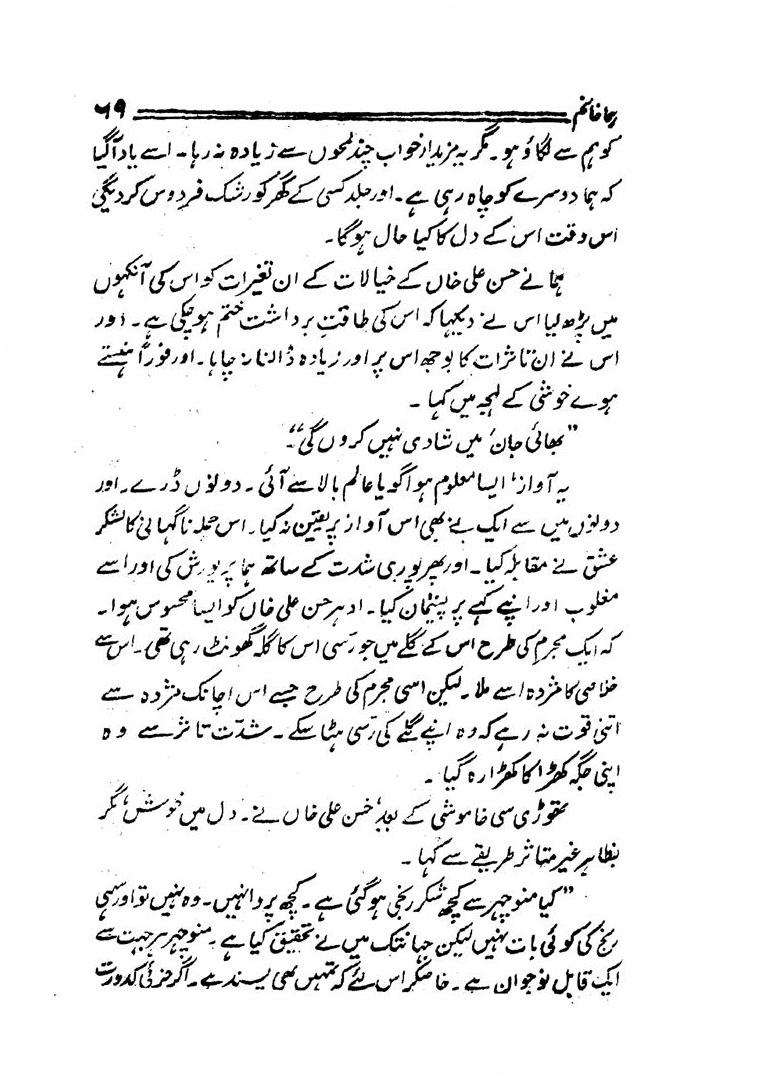 ہما خانم ۶۹
کو ہم سے لگاؤ ہو۔ مگر یہ مزیدار خواب چند لمحوں سے زیادہ نہ رہا۔ اسے یاد آگیا
کہ ہما دوسرے کو چاہ رہی ہے۔ اور جلد کسی کے گھر کو رشک فردوس کر دیگی
اس وقت اس کے دل کا کیا حال ہوگا۔
ہما نے حسن علی خاں کے خیالات کے ان تغیرات کو اس کی آنکہوں
میں پڑھ لیا اس نے دیکہا کہ اس کی طاقتِ برداشت ختم ہو چکی ہے۔ اور
اس نے ان تاثرات کا بوجھ اس پر اور زیادہ ڈالنا نہ چاہا۔ اور فوراً ہنستے
ہوے خوشی کے لہجہ میں کہا۔
”بھائی جان‘ میں شادی نہیں کروں گی“۔
یہ آواز‘ ایسا معلوم ہوا گویا عالم بالا سے آئی۔ دونوں ڈرے۔ اور
دونوں میں سے ایک نے بھی اس آواز پر یقین نہ کیا۔ اس حملہ ناگہانی کا لشکر
عشق نے مقابلہ کیا۔ اور پھر پوری شدت کے ساتھ ہما پر یورش کی اور اسے
مغلوب اور اپنے کہے پر پشیمان کیا۔ ادہر حسن علی خاں کو ایسا محسوس ہوا۔
کہ ایک مجرم کی طرح اس کے گلے میں جو رسی اس کا گلہ گھونٹ رہی تھی۔ اس سے
خلاصی کا مژدہ اسے ملا۔ لیکن اسی مجرم کی طرح جسے اس اچانک مژدہ سے
اتنی قوت نہ رہے کہ وہ اپنے گلے کی رسّی ہٹا سکے۔ شدّت تاثر سے وہ
اپنی جگہ کھڑا کا کھڑا رہ گیا۔
تھوڑی سی خاموشی کے بعد‘ حسن علی خاں نے۔ دل میں خوش‘ مگر
بظاہر غیر متاثر طریقے سے کہا۔
”کیا منوچہر سے کچھ شکر رنجی ہوگئی ہے۔ کچھ پروا نہیں۔ وہ نہیں تو اور سہی
رنج کی کوئی بات نہیں لیکن جہانتک میں نے تحقیق کیا ہے۔ منوچہر ہر جہت سے
ایک قابل نوجوان ہے۔ خاصکر اس لئے کہ تمہیں بھی پسند ہے۔ اگر جزئی کدورت